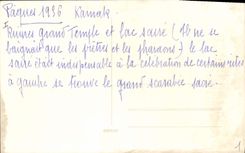 Pâques 1936 Karnak
Ruines grand Temple et lac sacré (Où ne se
baignait que les prêtres et les pharaons) le lac
sacré était indispensable à la célébration de certains rites
à gauche se trouve le grand scarabée sacré.